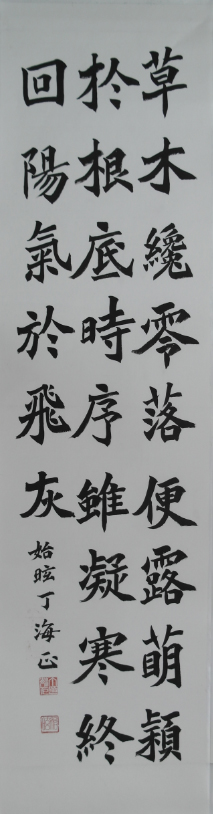 草木纔零落便露萌穎
扵根底時序雖凝寒終
回陽氣於飛灰
始昡丁海正